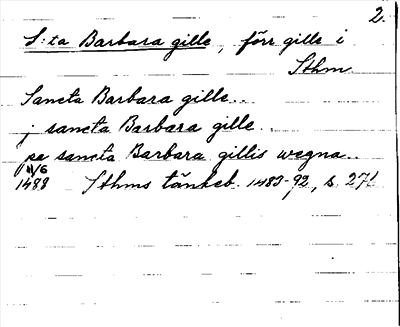 2.
S:ta Barbara gille, förr gille i
Sthm.
Sancta Barbara gille..
j sancta Barbara gille.
pa sancta Barbara gillis wegna..
11/6
1488 Sthms tänkeb. 1483-92, s. 271